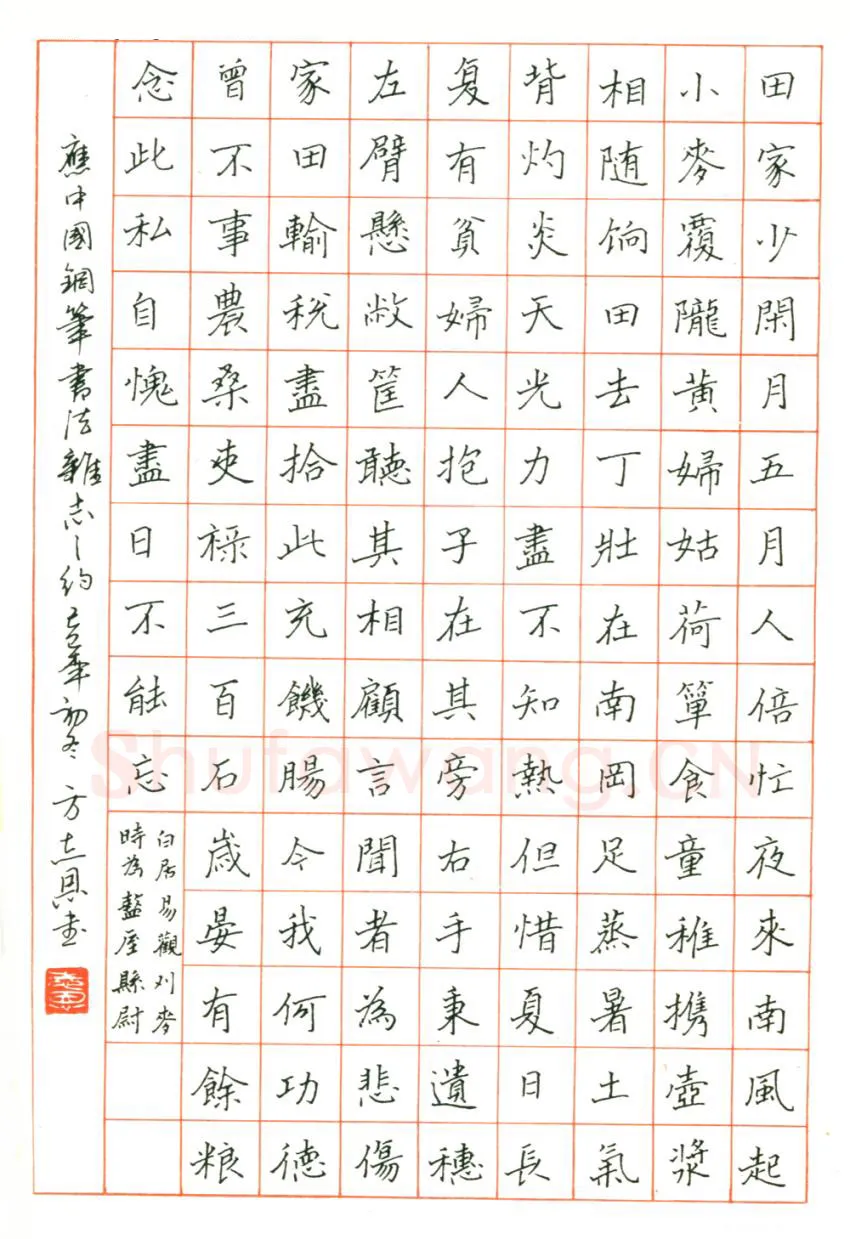 田家少閑月五月人倍忙夜來南風起
小麥覆隴黃婦姑荷簞食童稚携壺漿
相随饷田去丁壯在南岡足蒸暑土氣
背灼炎天光力盡不知熱但惜夏日長
复有貧婦人抱子在其旁右手秉遺穗
左臂懸敝筐聽其相顧言聞者為悲傷
家田輸税盡拾此充饑腸今我何功德
曾不事農桑吏禄三百石歲晏有餘粮
念此私自愧盡日不能忘
白居易觀刈麥
時為盩厔縣尉
應中國鋼筆書法雜志之約己巳年初冬方志恩书
Shufawang.CN